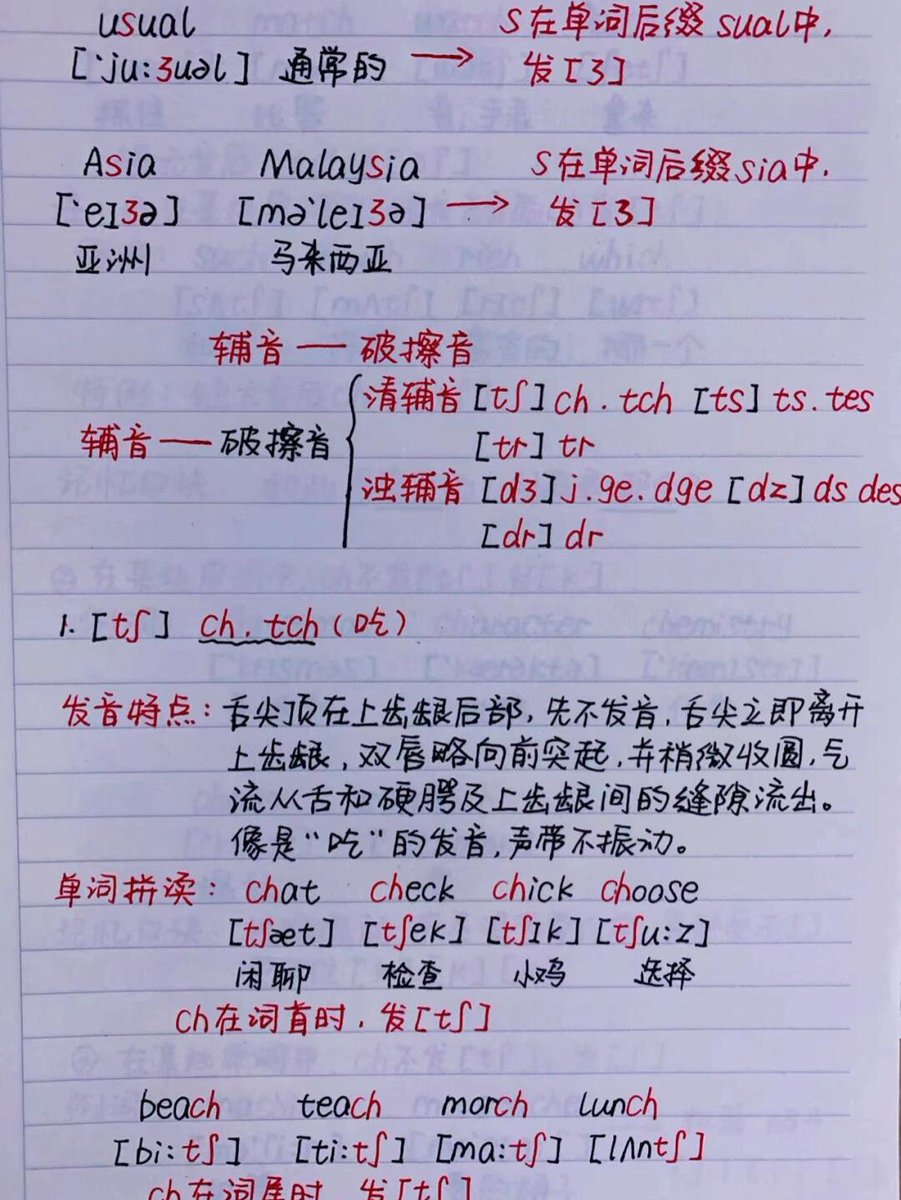 usual S在单词后缀sual中,
[ˈju:ʒuəl] 通常的 → 发[ʒ]
Asia Malaysia S在单词后缀sia中.
[ˈeɪʒə] [məˈleɪʒə] → 发[ʒ]
亚洲 马来西亚
辅音 — 破擦音
清辅音 [tʃ] ch . tch [ts] ts. tes
[tr] tr
辅音 — 破擦音
浊辅音 [dʒ] j. ge. dge [dz] ds des
[dr] dr
1. [tʃ] ch . tch (吃)
发音特点: 舌尖顶在上齿龈后部, 先不发音, 舌尖立即离开
上齿龈, 双唇略向前突起, 并稍微收圆, 气
流从舌和硬腭及上齿龈间的缝隙流出。
像是"吃"的发音, 声带不振动。
单词拼读: chat check chick choose
[tʃæt] [tʃek] [tʃɪk] [tʃu:z]
闲聊 检查 小鸡 选择
ch在词首时. 发[tʃ]
beach teach morch lunch
[bi:tʃ] [ti:tʃ] [ma:tʃ] [lʌntʃ]
ch在词尾时. 发[tʃ]